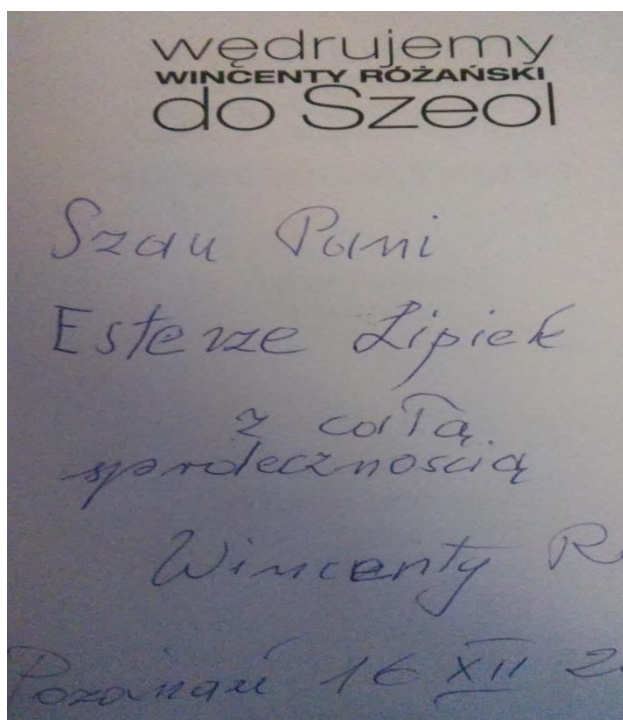 wędrujemy
WINCENTY RÓŻAŃSKI
do Szeol
Szan Pani
Esterze Lipiek
z całą
serdecznością
Wincenty R
Poznań 16 XII 2